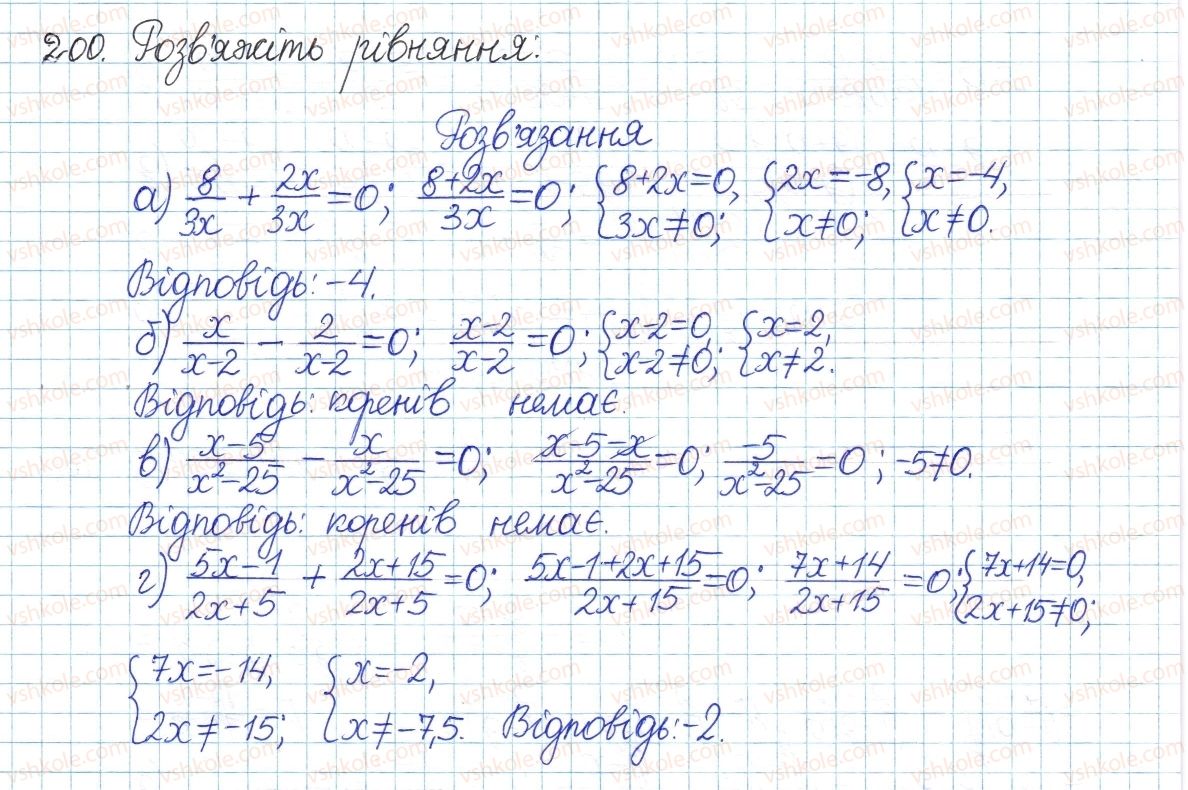 200. Розв'яжіть рівняння:
Розв'язання
а) 8/3x + 2x/3x = 0; (8+2x)/3x = 0; {8+2x=0, 3x≠0; {2x=-8, x≠0; {x=-4, x≠0.
Відповідь: -4.
б) x/(x-2) - 2/(x-2) = 0; (x-2)/(x-2) = 0; {x-2=0, x-2≠0; {x=2, x≠2.
Відповідь: коренів немає.
в) (x-5)/(x²-25) - x/(x²-25) = 0; (x-5-x)/(x²-25) = 0; -5/(x²-25) = 0; -5≠0.
Відповідь: коренів немає.
г) (5x-1)/(2x+5) + (2x+15)/(2x+5) = 0; (5x-1+2x+15)/(2x+15) = 0; (7x+14)/(2x+15) = 0; {7x+14=0, 2x+15≠0;
{7x=-14, 2x≠-15; {x=-2, x≠-7,5. Відповідь: -2.